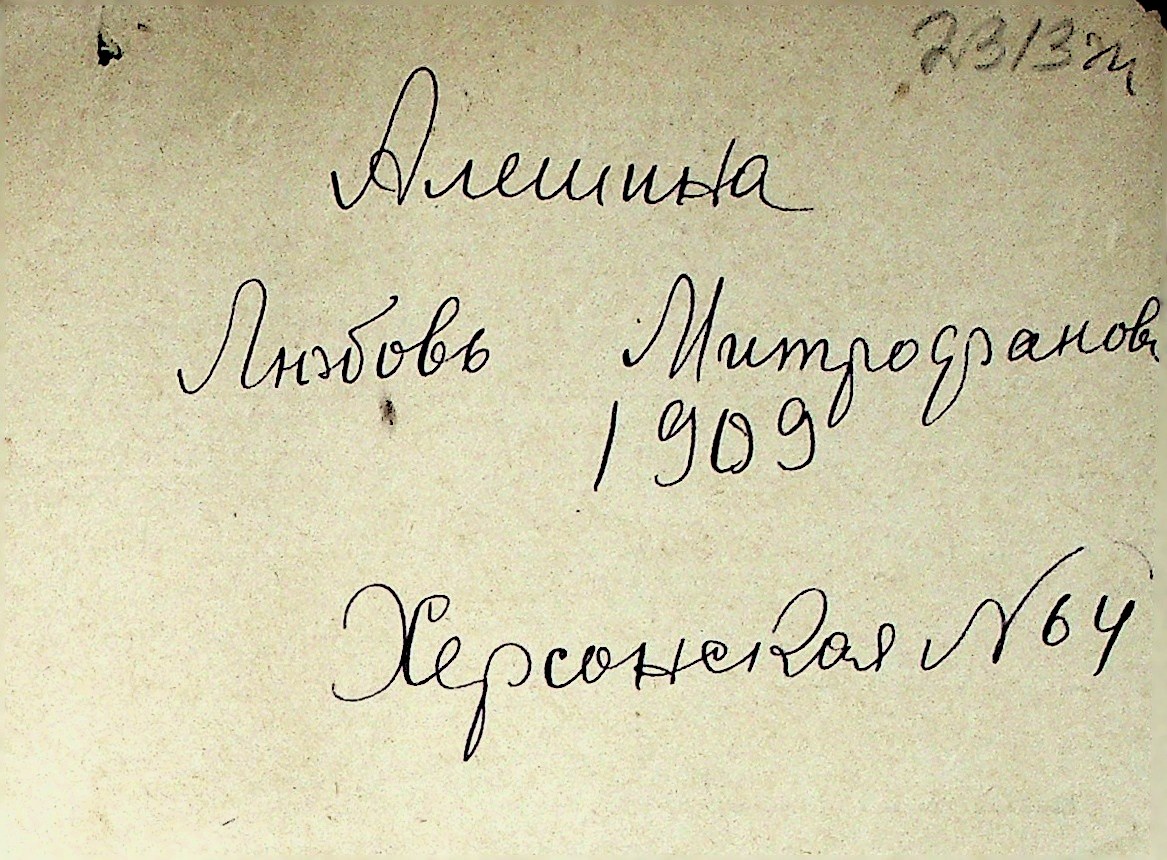 2313
Алешина
Любовь Митрофанов
1909
Херсонская № 64